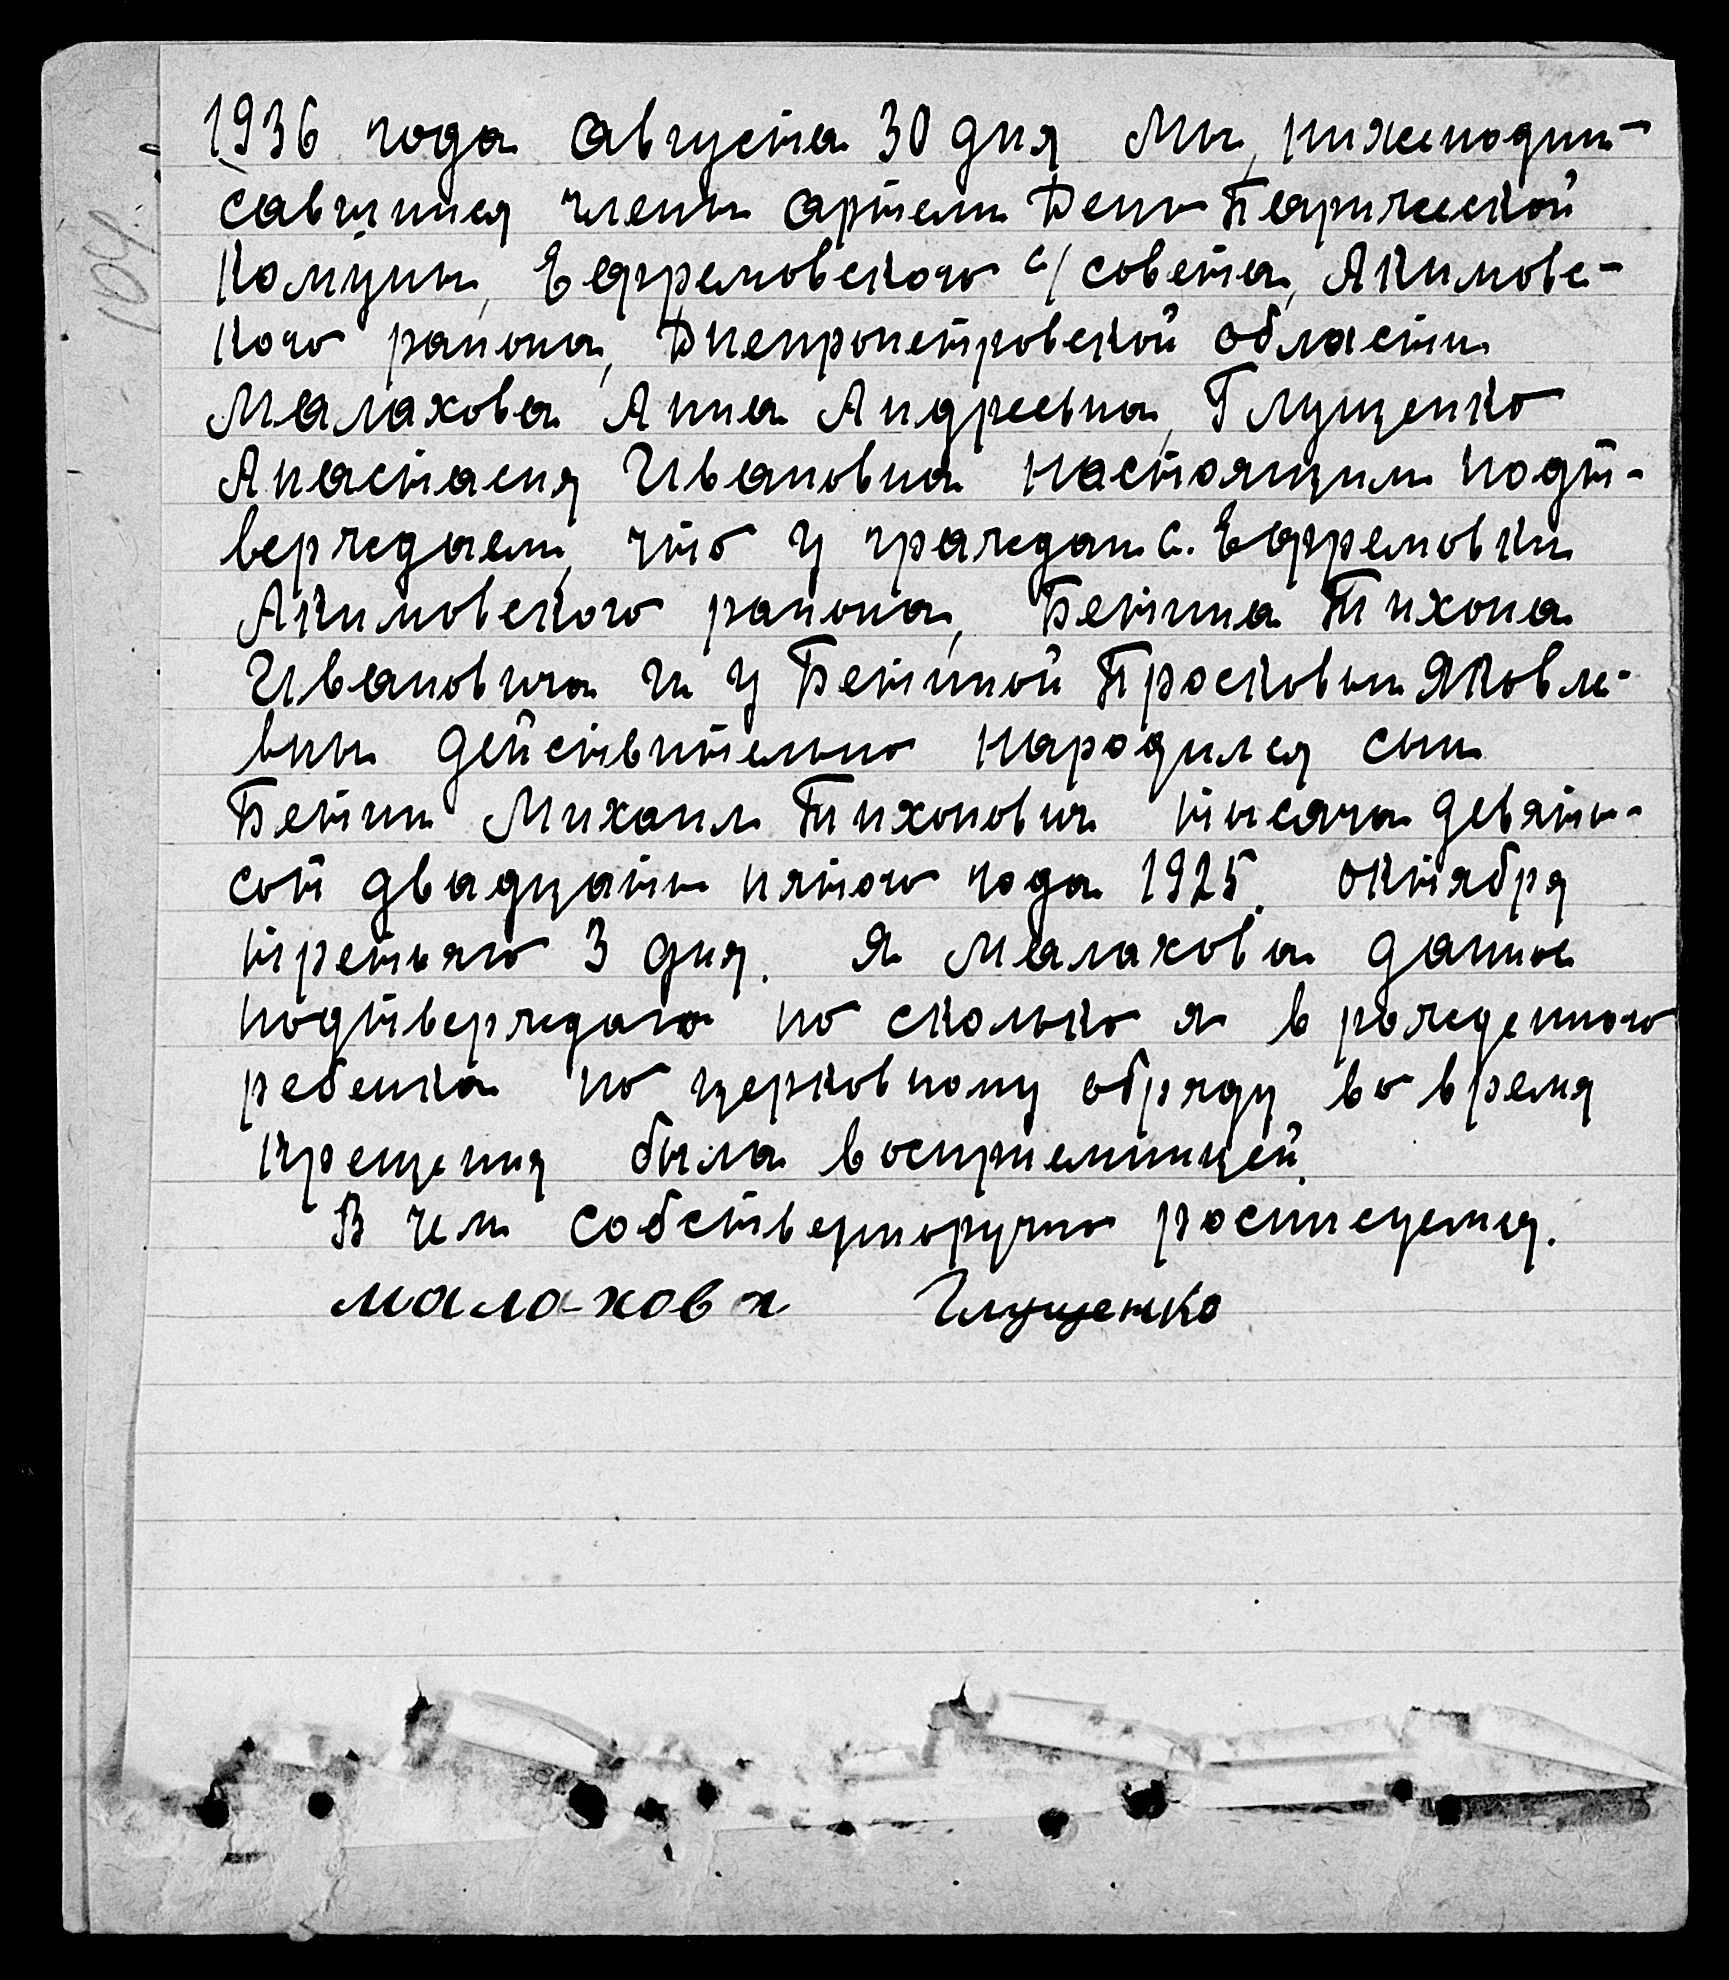 1936 года августа 30 дня Мы, нижеподпи-
савшиися члены артели День Парижской
Комуны, Ефремовского с/совета, Акимовс-
кого района, Днепропетровской области
Малахова Анна Андреевна, Глущенко
Анастасия Ивановна настоящим подт-
верждаем, что у граждан с. Ефремовки
Акимовского района, Бетина Тихона
Ивановича и у Бетиной Просковьи Яковле-
вны действительно народился сын
Бетин Михаил Тихонович тысяча девять-
сот двадцать пятого года 1925. октября
третьяго 3 дня. Я Малахова данное
подтверждаю по сколько я в рожденного
ребенка по церковному обряду во время
крещения была восприемницей.
В чем собственоручно росписуемся.
малахова Глущенко
104.